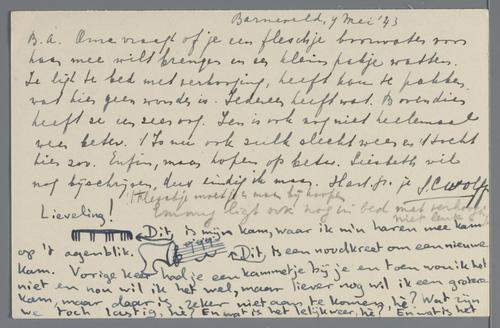 Barneveld, 9 Mei '43
B.A. Oma vraagt of je een fleschje boorwater voor
haar mee wilt brengen en een klein pakje watten.
Ze ligt te bed met verkoudging, heeft kou te pakken,
wat hier geen wonder is. Iedereen heeft wat. Bovendien
heeft ze een zeer oog. Len is ook nog niet heelemaal
weer beter. 't Is nu ook zulk slecht weer en 't tocht
hier zoo. Enfin, maar hopen op beter. Liesbeth wil
nog bijschrijven, dus eindig ik maar. Hart. gr. je S.C. Wolff
't Fleschje moet je maar bij koopen
ligt ook nog in bed met
niet
Lieveling!
Dit, is mijn kam, waar ik mijn haren mee kam
op 't oogenblik. Dit, is een noodkreet om een nieuwe
kam. Vorige keer had je een kammetje bij je en toen wou ik het
niet en nou wil ik het wel, maar liever nog wil ik een grotere
kam, maar daar is zeker niet aan te komen, hè? Wat zijn
we toch lastig, hè? En wat is het lelijk weer, hè? En wat is het